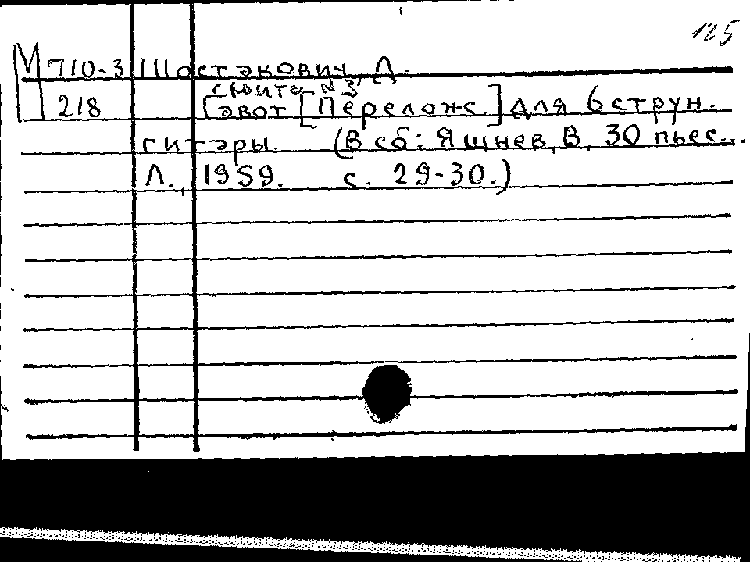 125
М 710-3 Шостакович, Д.
сюита N 3,
218 Гавот [Перелож.] для 6 струн.
гитары. (В сб: Яшнев, В. 30 пьес...
Л., 1959. с. 29-30.)